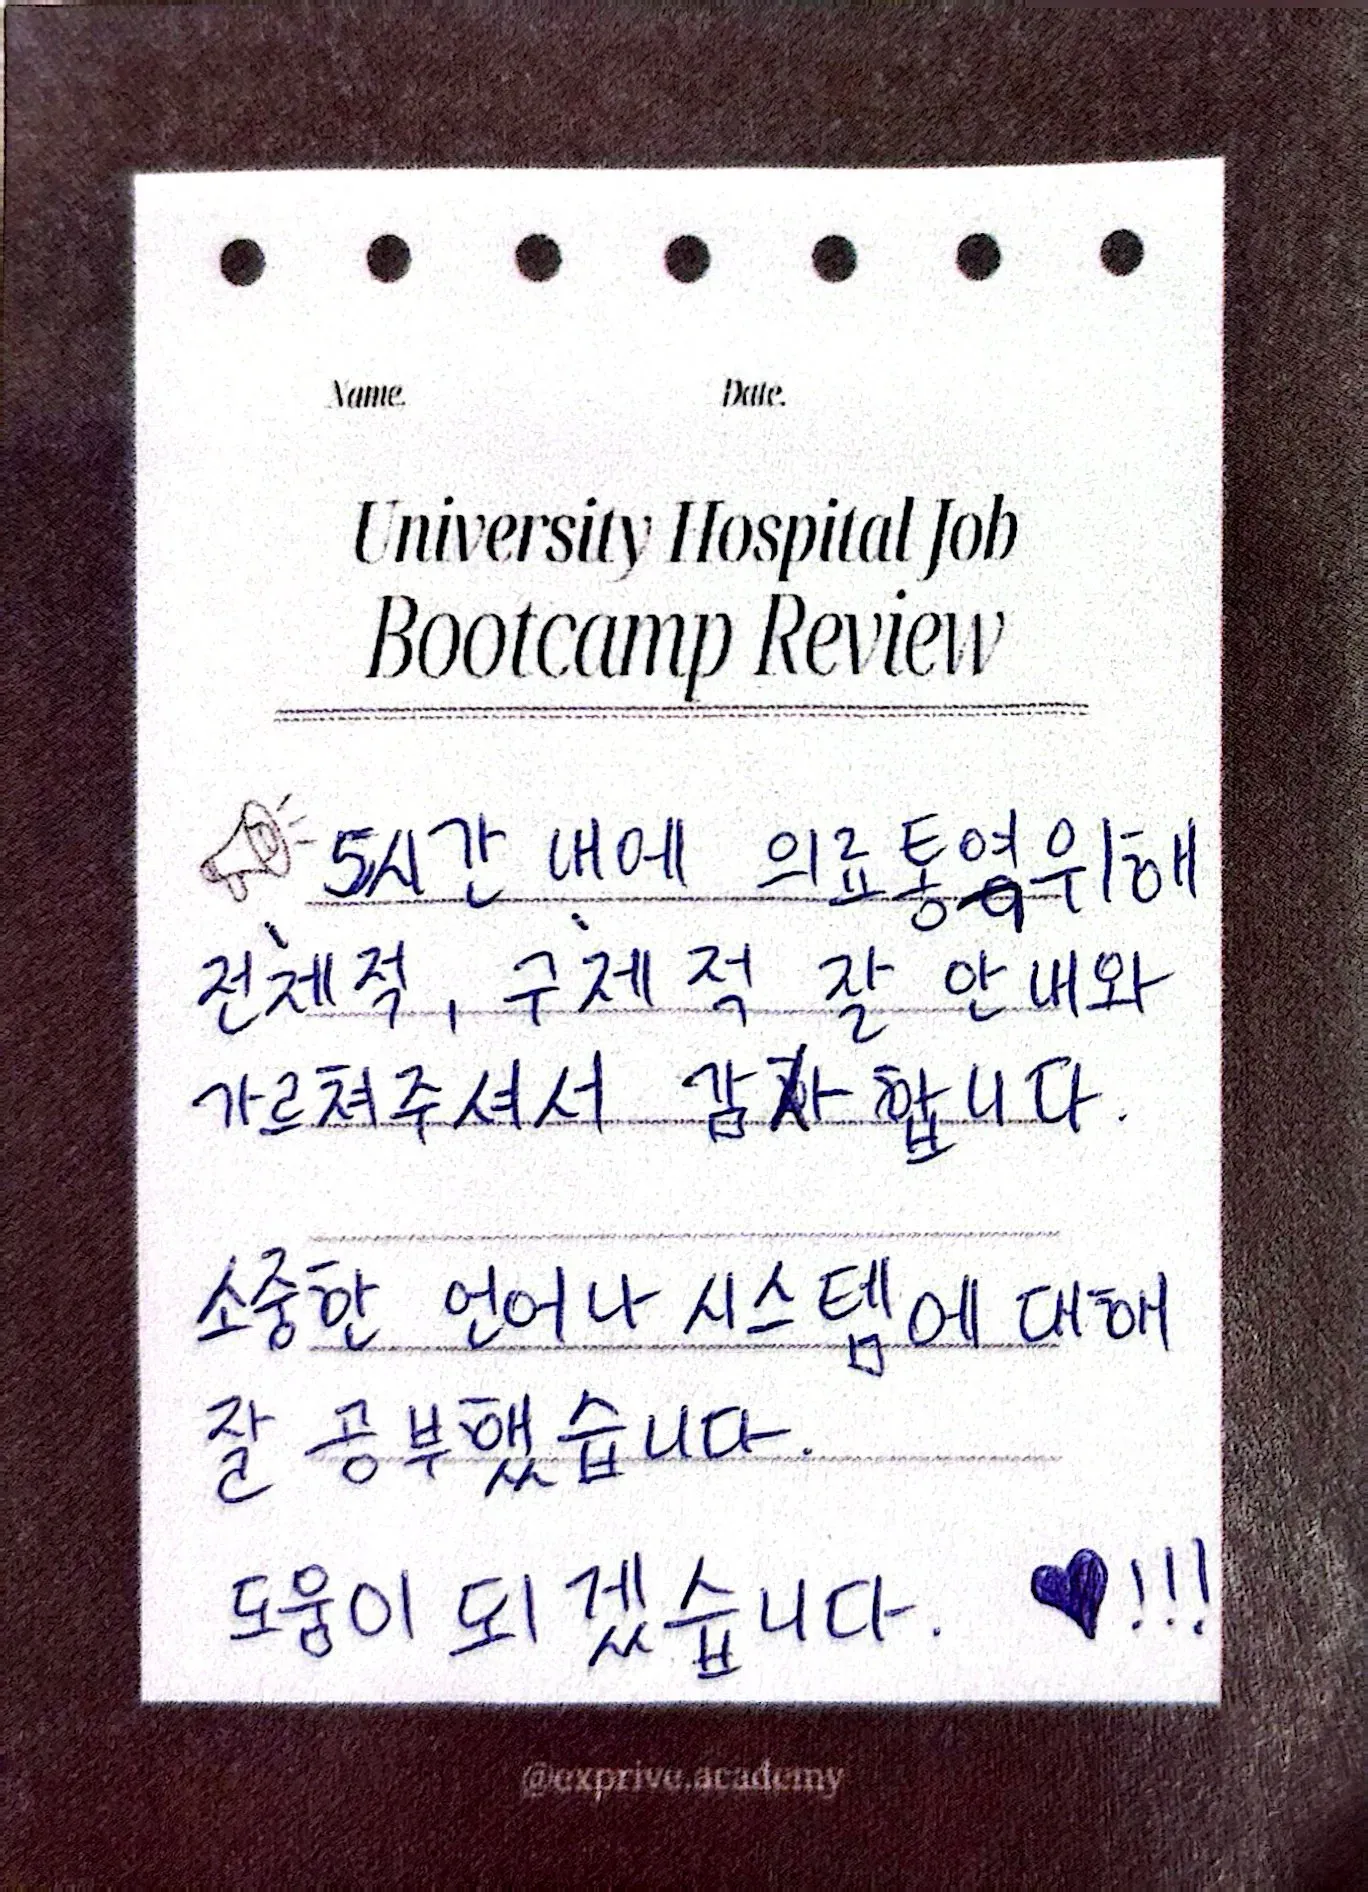 Name. Date.
University Hospital Job
Bootcamp Review
5시간 내에 의료통역위해
전체적, 구체적 잘 안내와
가르쳐주셔서 감사합니다.
소중한 언어나 시스템에 대해
잘 공부했습니다.
도움이 되겠습니다. ♥!!!
@exprive.academy